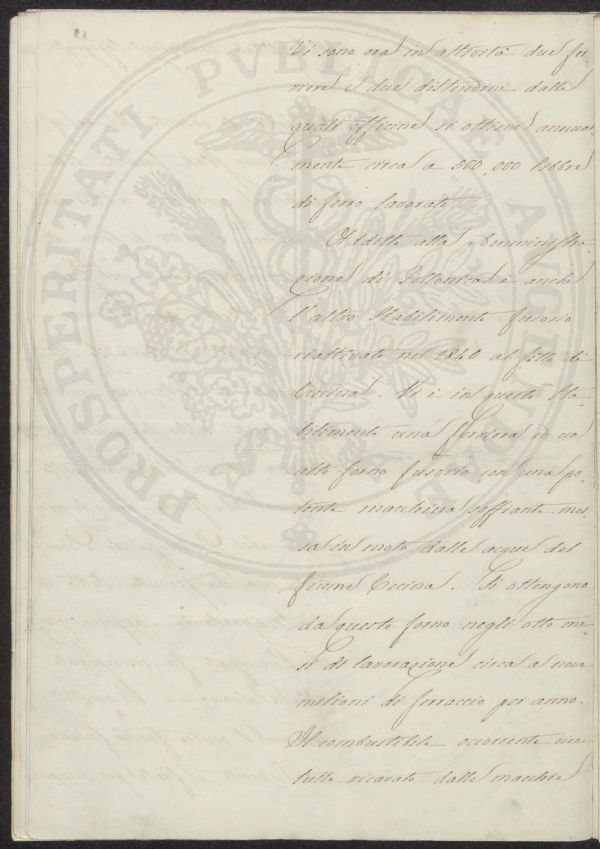 Vi sono ora in attività due fer-
riere e due distendini dalle
quali officine si ottiene annual-
mente circa a 500,000 libbre
di ferro lavorato
Addetto alla Amministra-
zione di Follonica è anche
l'altro Stabilimento fusorio
riattivato nel 1840 al fitto di
Cecina. Vi è in questo Sta-
bilimento una ferriera ed un
alto forno fusorio con una po-
tente macchina soffiante mes-
sa in moto dalle acque del
fiume Cecina. Si ottengono
da questo forno negli otto me-
si di lavorazione circa a nove
milioni di ferraccio per anno.
Il combustibile occorrente vien
tutto ricavato dalle macchie
PROSPERITATI PVBLICAE AVGENDAE